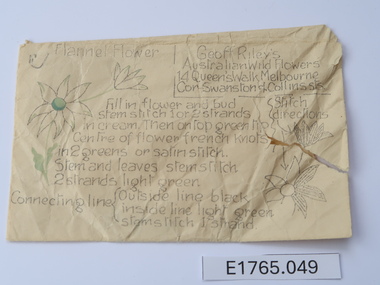 Flannel Flower
Geoff Riley's
Australian Wild Flowers
14 Queens Walk Melbourne
Cor. Swanston & Collins Sts.
Fill in flower and bud
stem stitch for 2 strands
in cream. Then on top green tip
Centre of flower french knots
in 2 greens or satin stitch.
Stem and leaves stem stitch
2 strands light green
Stitch
directions
Connecting line
Outside line black
inside line light green
stem stitch 1 strand
E1765.049